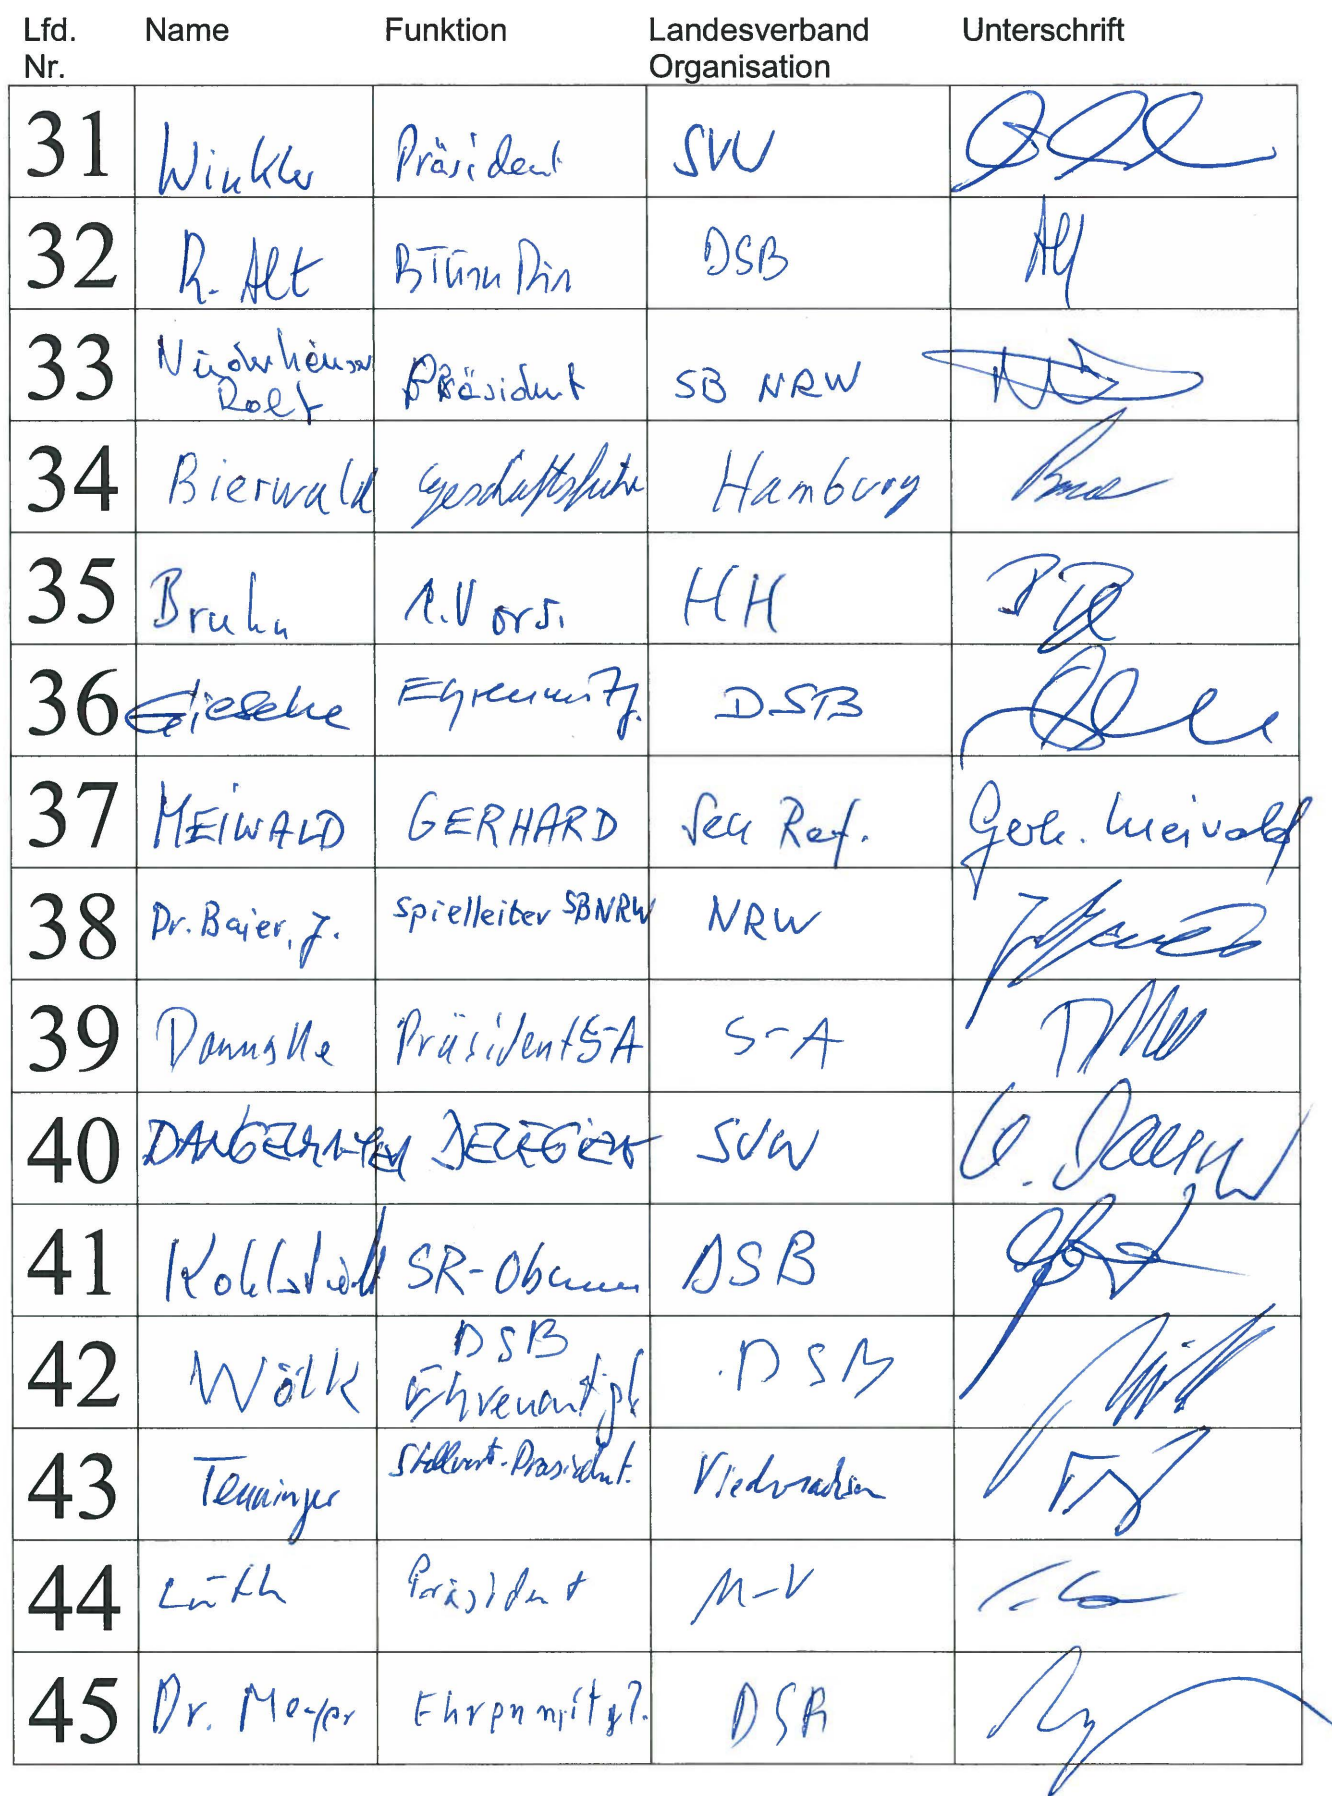 Lfd. Nr. Name Funktion Landesverband Organisation Unterschrift
31 Winkler Präsident SVW
32 R. Alt BTurnDir DSB Alt
33 Niederhäuser Rolf Präsident SB NRW
34 Bierwald Geschäftsführer Hamburg
35 Bruhn 1. Vors. HH
36 Giesecke Ehrenmitgl. DSB
37 MEIWALD GERHARD Sen Ref. Gerh. Meiwald
38 Dr. Baier, J. Spielleiter SBNRW NRW
39 Domaske Präsident S-A S-A
40 DANGELMAYER DELEGIERT SVW
41 Kohlstädt SR-Obmann DSB
42 Wölk DSB Ehrenmitgl. DSB
43 Tenninger Stellvert. Präsident. Niedersachsen
44 Lüth Präsident M-V
45 Dr. Meyer Ehrenmitgl. DSB